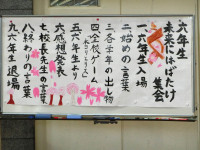 六年生
未来にはばたけ
集会
一六年生入場
二始めの言葉
三各学年の出し物
四全校ゲーム
五六年生より
六感想発表
七校長先生の言葉
八終わりの言葉
九六年生退場